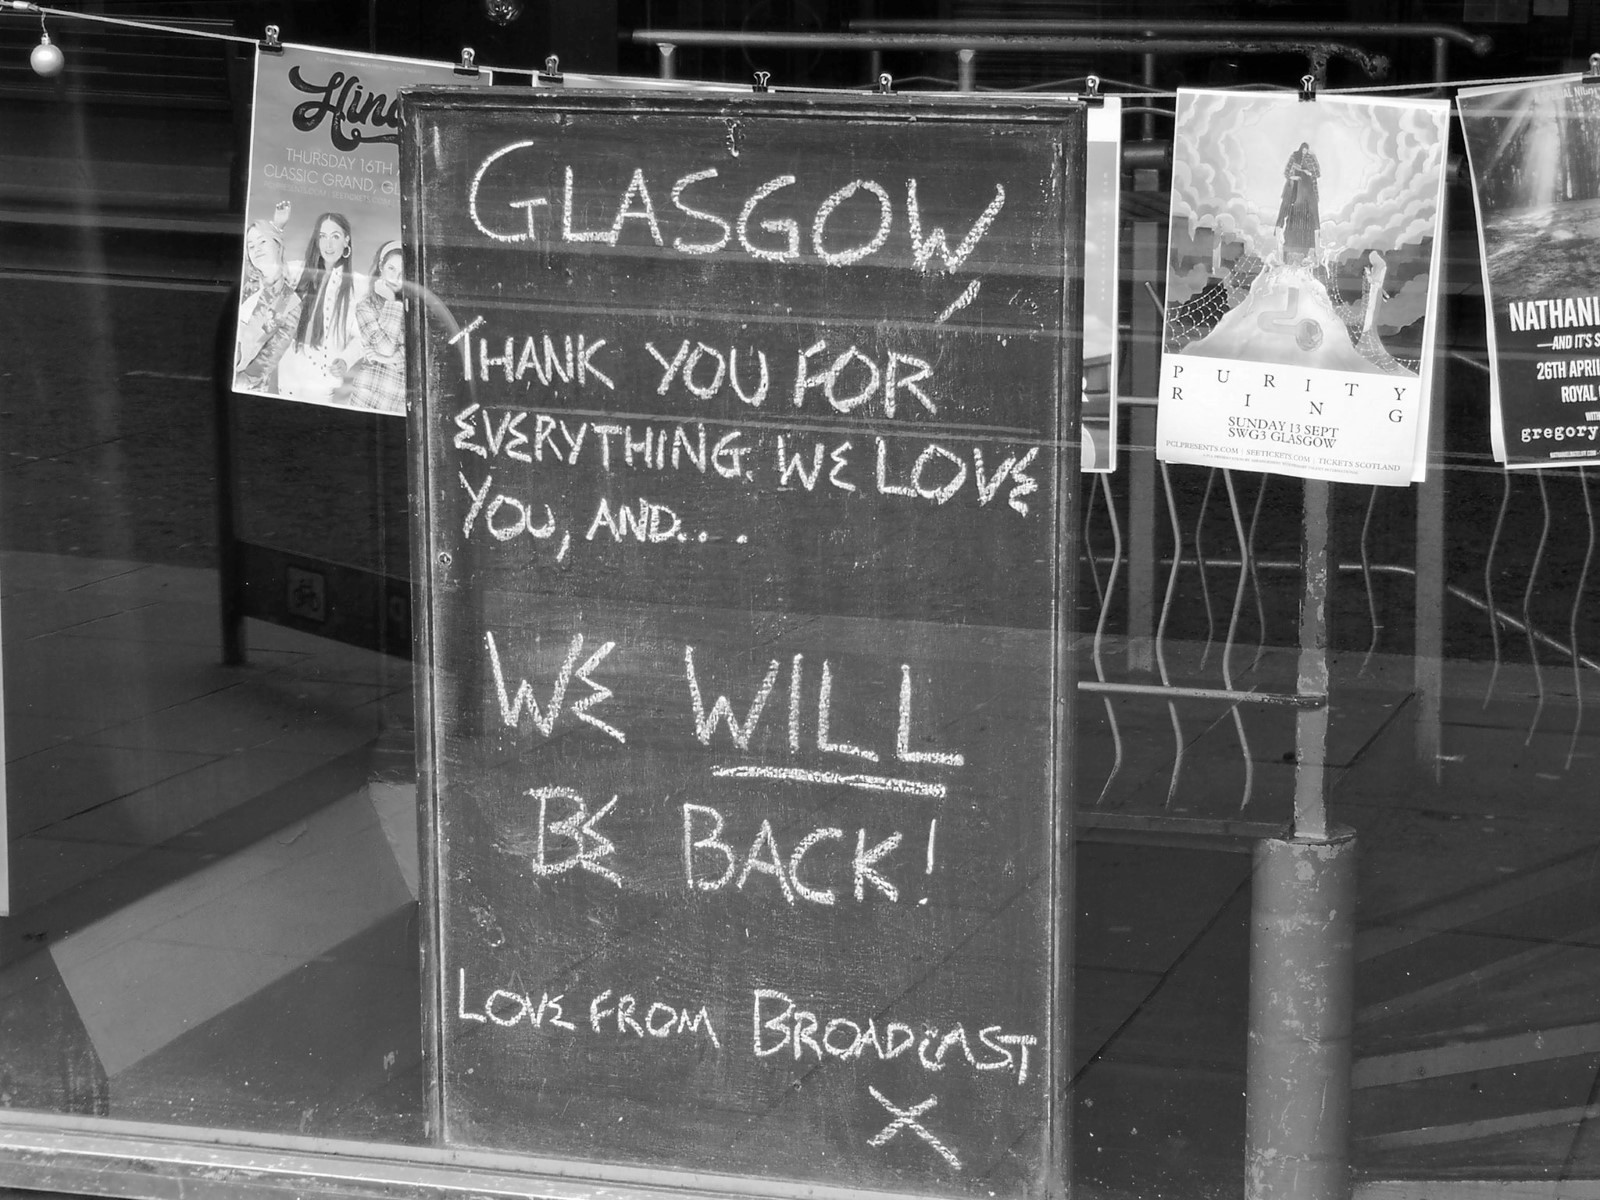 GLASGOW,
THANK YOU FOR
EVERYTHING. WE LOVE
YOU, AND...
WE WILL
BE BACK!
LOVE FROM BROADCAST
X
THURSDAY 16TH
CLASSIC GRAND,
PURITY
RING
SUNDAY 13 SEPT
SWG3 GLASGOW
PCLPRESENTS.COM | SEETICKETS.COM | TICKETS SCOTLAND
NATHANI
—AND IT'S S
26TH APRIL
ROYAL
WITH
gregory